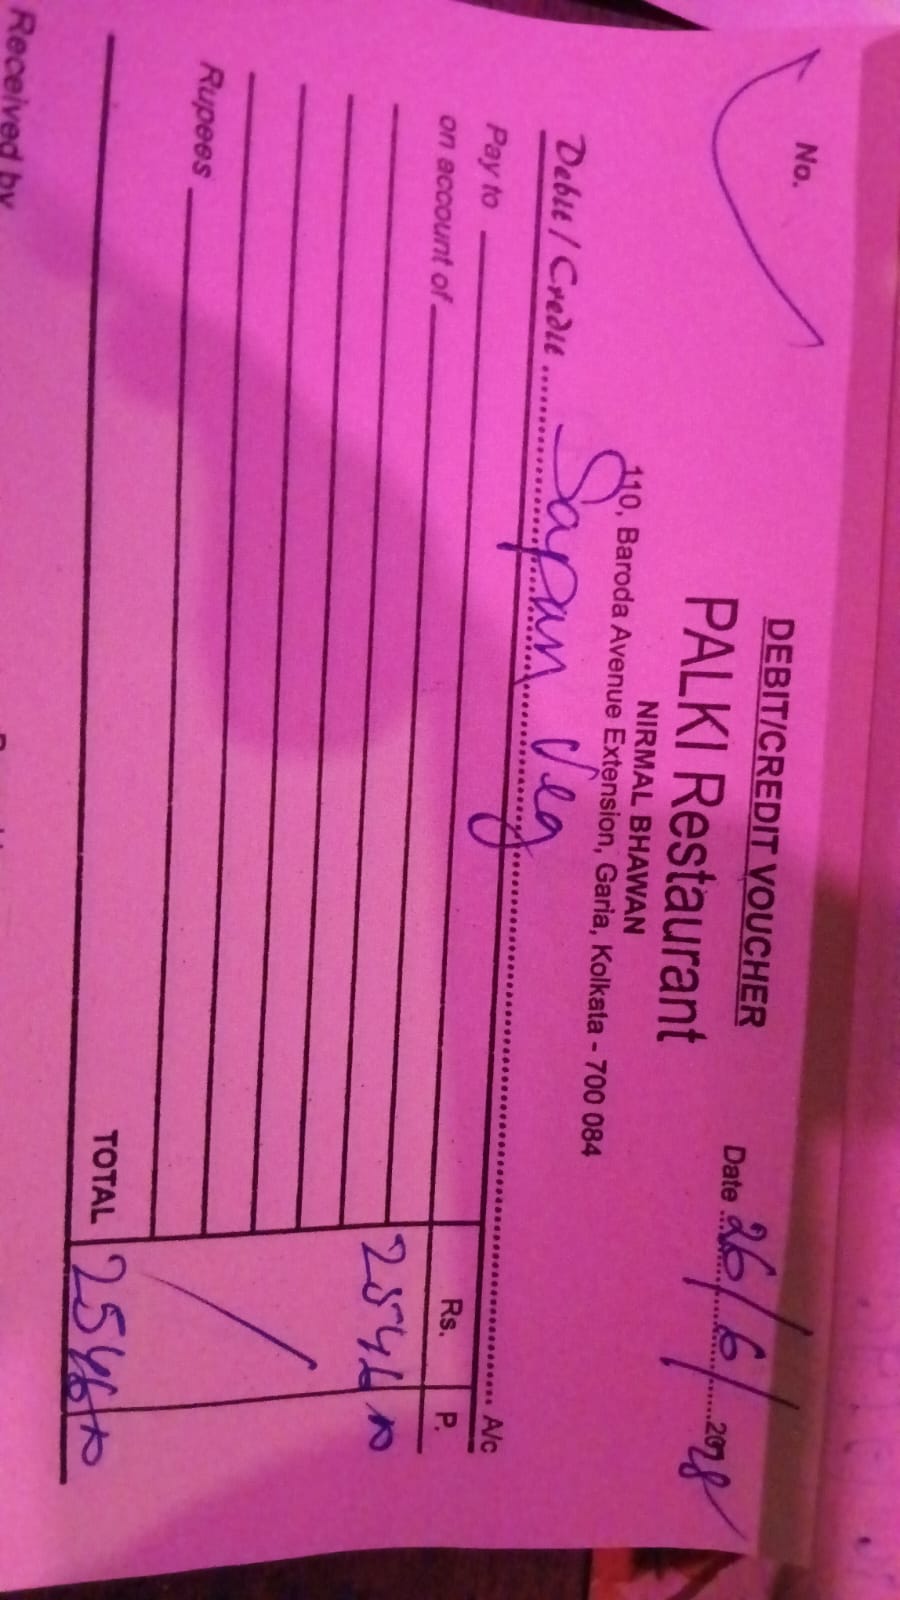 No.
DEBIT/CREDIT VOUCHER
PALKI Restaurant
NIRMAL BHAWAN
110, Baroda Avenue Extension, Garia, Kolkata - 700 084
Date 26/6/
Debit / Credit Sapan Veg A/c
Pay to Rs. P.
on account of
2546
Rupees
TOTAL 2546
Received by